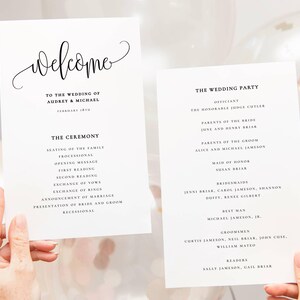 welcome
TO THE WEDDING OF
AUDREY & MICHAEL
FEBRUARY 18TH
THE CEREMONY
SEATING OF THE FAMILY
PROCESSIONAL
OPENING MESSAGE
FIRST READING
SECOND READING
EXCHANGE OF VOWS
EXCHANGE OF RINGS
ANNOUNCEMENT OF MARRIAGE
PRESENTATION OF BRIDE AND GROOM
RECESSIONAL
THE WEDDING PARTY
OFFICIANT
THE HONORABLE JUDGE CUTLER
PARENTS OF THE BRIDE
JOSE AND HENRY BRIAR
PARENTS OF THE GROOM
ALICE AND MICHAEL JAMESON
MAID OF HONOR
JULIA BRIAR
BRIDESMAIDS
JENNI BRIAR, CAROL JAMESON, SHANNON
DOITY, RENEE GILBERT
BEST MAN
MICHAEL JAMESON, JR.
GROOMSMEN
CURTIS JAMESON, NEIL BRIAR, JOHN COSE,
WILLIAM MATEO
READERS
SALLY JAMESON, GAIL BRIAR